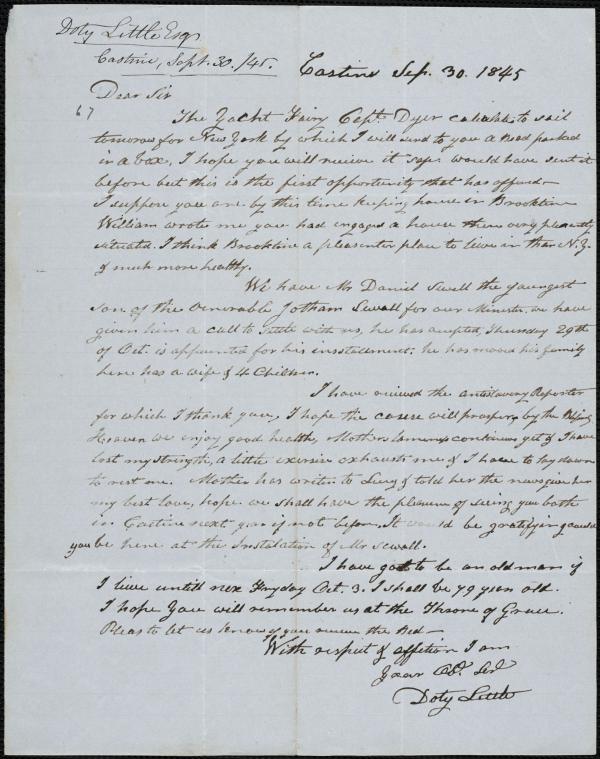 Doty Little Esq
Castine, Sept. 30. /45.
Castine Sep. 30. 1845
Dear Sir
67
The Yacht Fairy Capt. Dyer calculate to sail
tomorow for New York by which I will send to you a Bed packed
in a box, I hope you will recieve it safe. would have sent it
before but this is the first opportunity that has offerd—
I suppose you are by this time keeping house in Brookline
William wrote me you had engaged a house there very pleasently
situated. I think Brookline a pleasenter place to live in than N.Y.
& much more healthy.
We have Mr Daniel Sewall the youngest
son of the venerable Jotham Sewall for our Minister. we have
given him a call to settle with us, he has acepted, Thursday 29th
of Oct. is appointed for his installment. he has moved his family
here has a wife & 4 Children.
I have recieved the antislavery Reporter
for which I thank you, I hope the cause will prosper, by the
Heaven we enjoy good health, Mothers lameness continues yet & I have
lost my strength, a little exersise exhausts me & I have to lay down
to rest me. Mother has writen to Lucy & told her the news give her
my best love, hope we shall have the pleasure of seeing you both
in Castine next year if not before. It would be gratifying could
you be here at the Instalation of Mr Sewall.
I have got to be an old man if
I live until nex Fryday Oct. 3. I shall be 79 years old.
I hope you will remember us at the Throne of Grace.
Pleas to let us know if you recieve the Bed—
With respect & affection I am
Your Obt. Servt
Doty Little